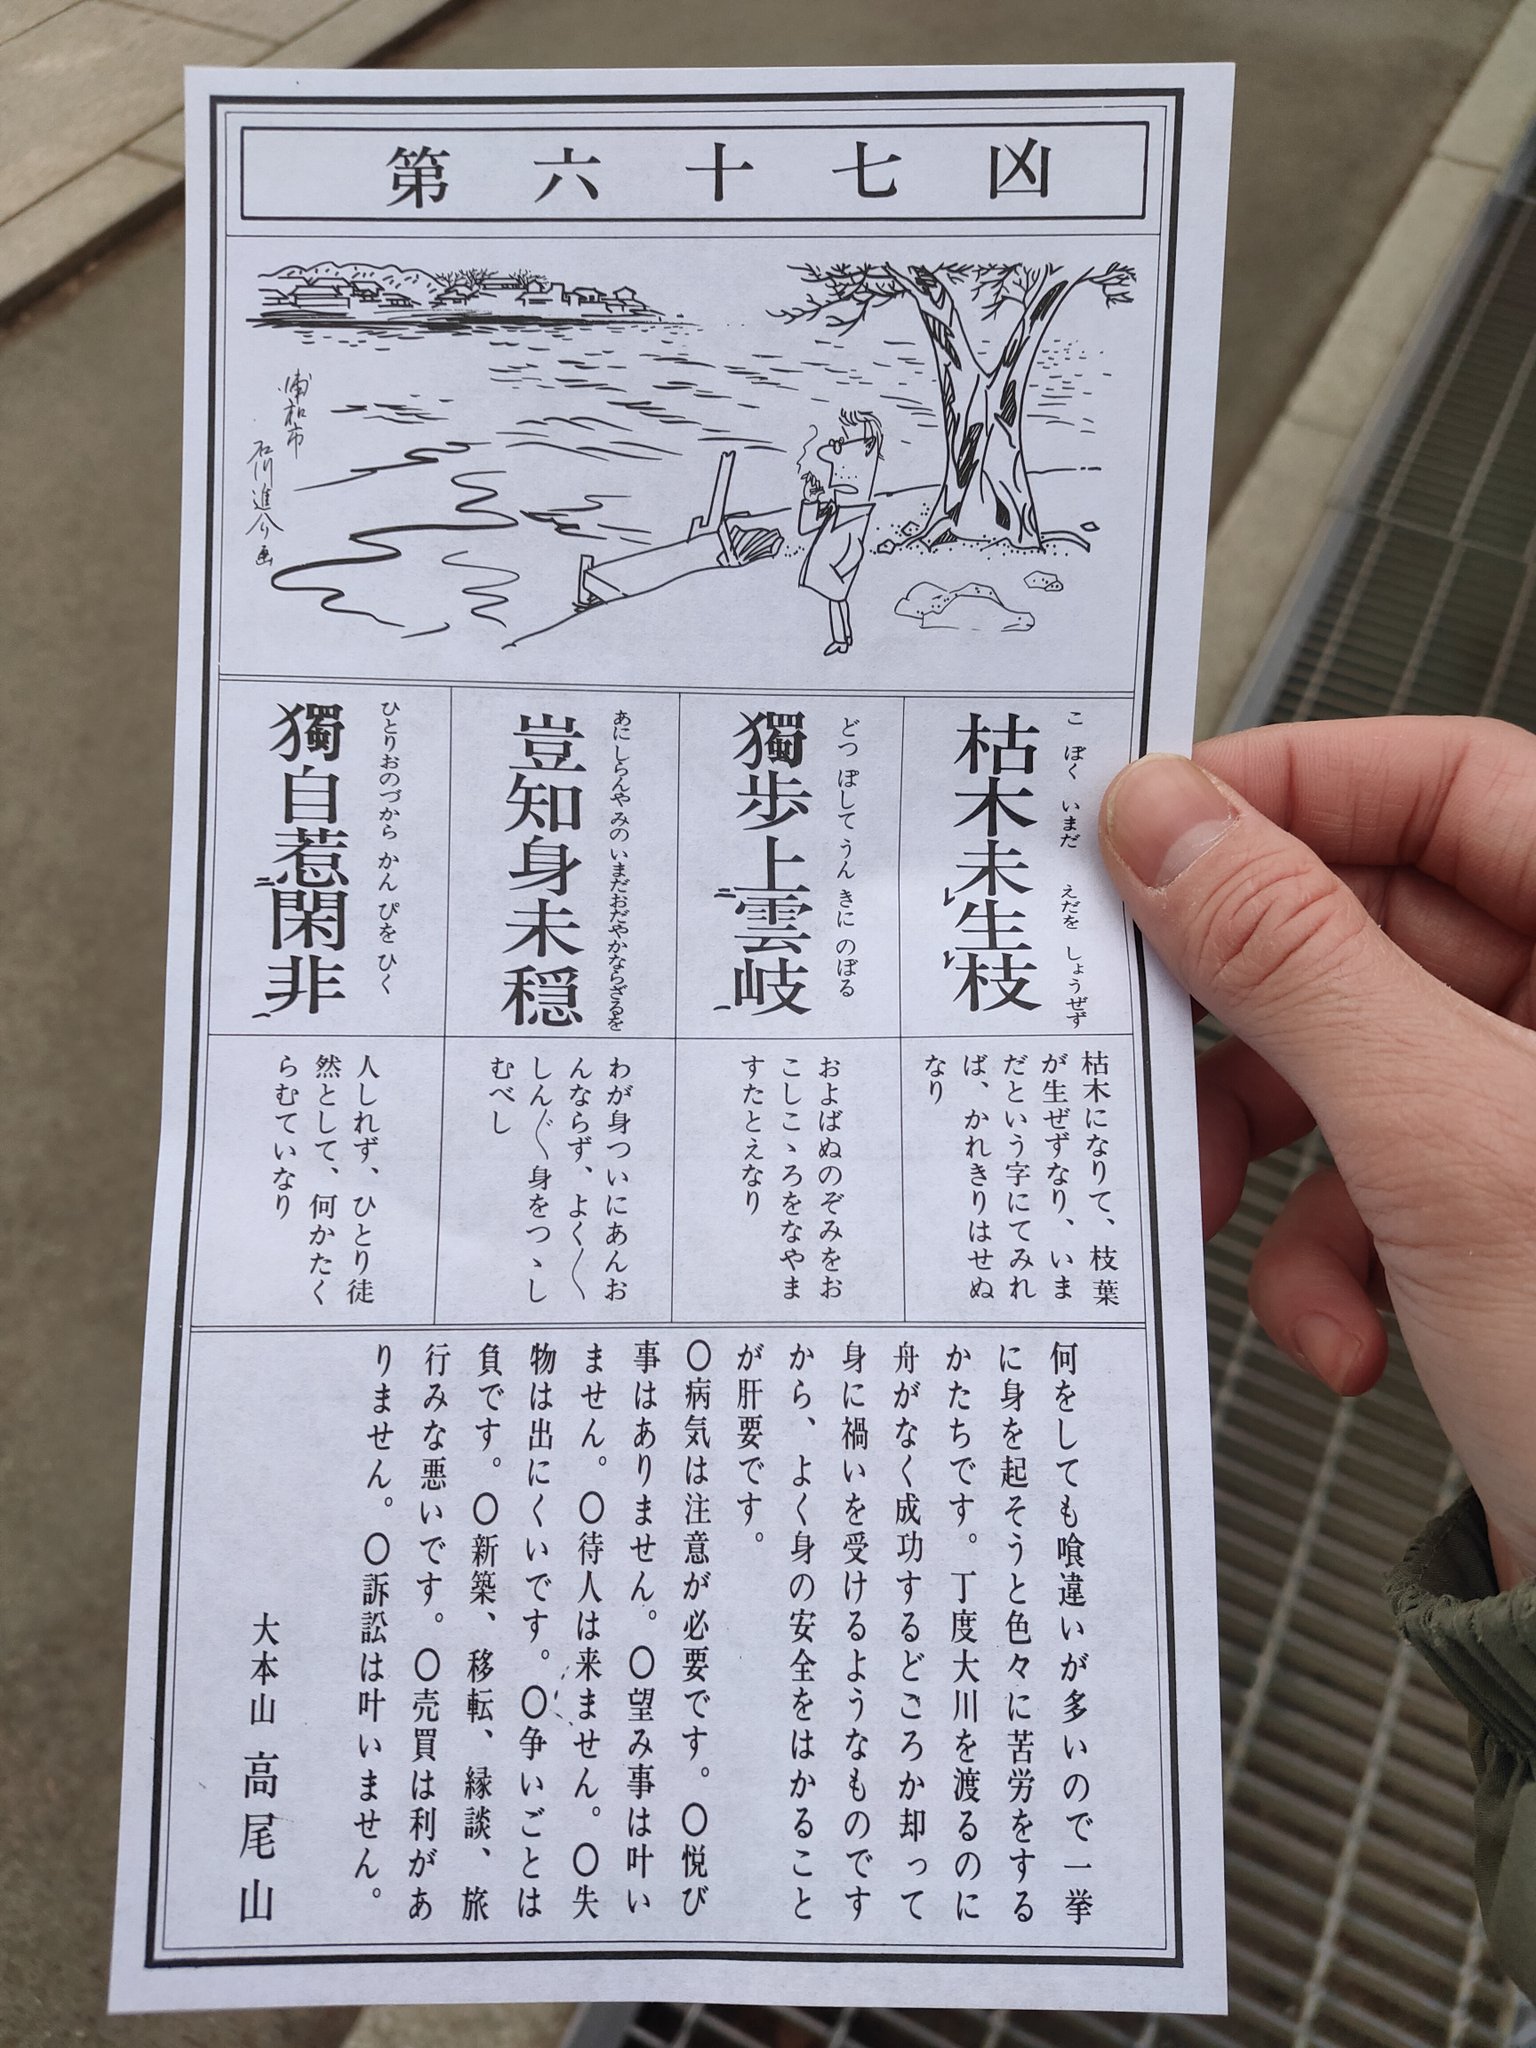 第六十七凶
浦和市
石川進介画
こぼくいまだえだをしょうぜず
枯木未生枝
レレ
どつぽしてうんきにのぼる
獨歩上雲岐
二一
あにしらんやみのいまだおだやかならざるを
豈知身未穏
ひとりおのづからかんぴをひく
獨自惹閑非
二一
枯木になりて、枝葉
が生ぜずなり、いま
だという字にてみれ
ば、かれきりはせぬ
なり
およばぬのぞみをお
こしこゝろをなやま
すたとえなり
わが身ついにあんお
んならず、よく〱
しん〲身をつゝし
むべし
人しれず、ひとり徒
然として、何かたく
らむていなり
何をしても喰違いが多いので一挙
に身を起そうと色々に苦労をする
かたちです。丁度大川を渡るのに
舟がなく成功するどころか却って
身に禍いを受けるようなものです
から、よく身の安全をはかること
が肝要です。
〇病気は注意が必要です。〇悦び
事はありません。〇望み事は叶い
ません。〇待人は来ません。〇失
物は出にくいです。〇争いごとは
負です。〇新築、移転、縁談、旅
行みな悪いです。〇売買は利があ
りません。〇訴訟は叶いません。
大本山 高尾山